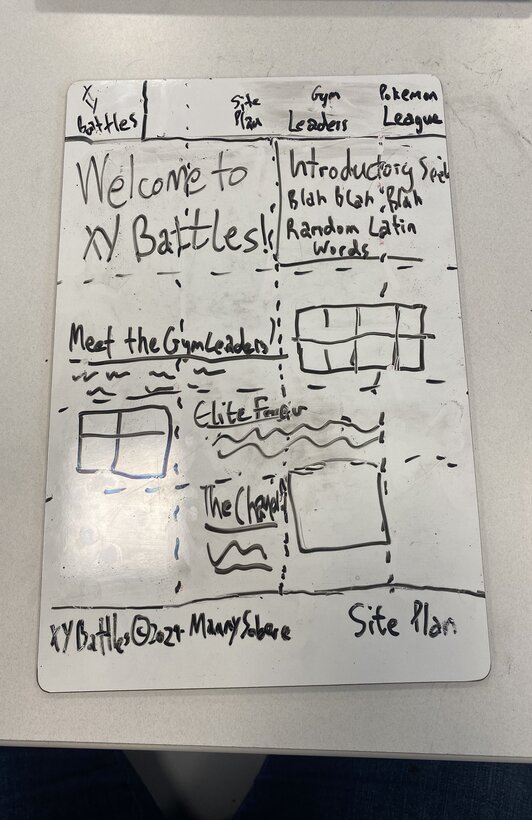 XY
Battles
Site
Plan
Gym
Leaders
Pokemon
League
Welcome to
XY Battles!
Introductory
Blah Blah Blah
Random Latin
Words
Meet the Gym Leaders!
Elite Four
The Champ
XY Battles © 2024 Manny
Site Plan